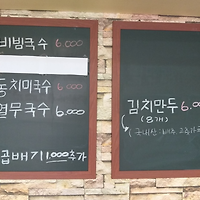 비빔국수 6.000
동치미국수 6.000
열무국수 6.000
곱배기 1.000 추가
김치만두 6.00
(8개)
(국내산: 배추 고추가